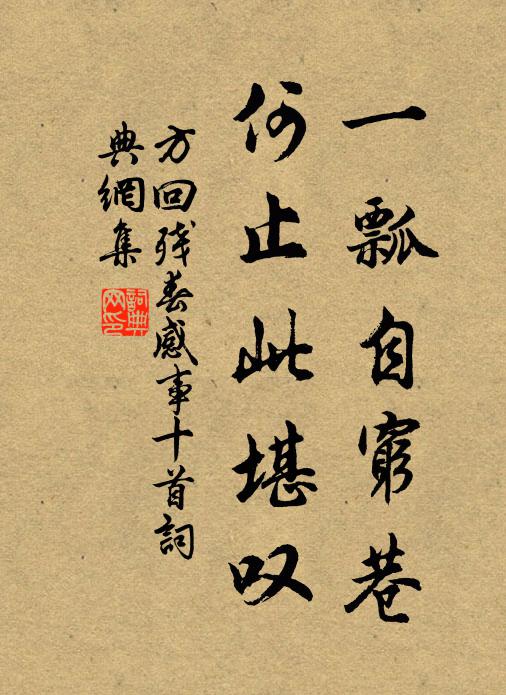 一瓢自窮巷
何止此堪叹
方回残春感事十首词
典網集
詞典
网印